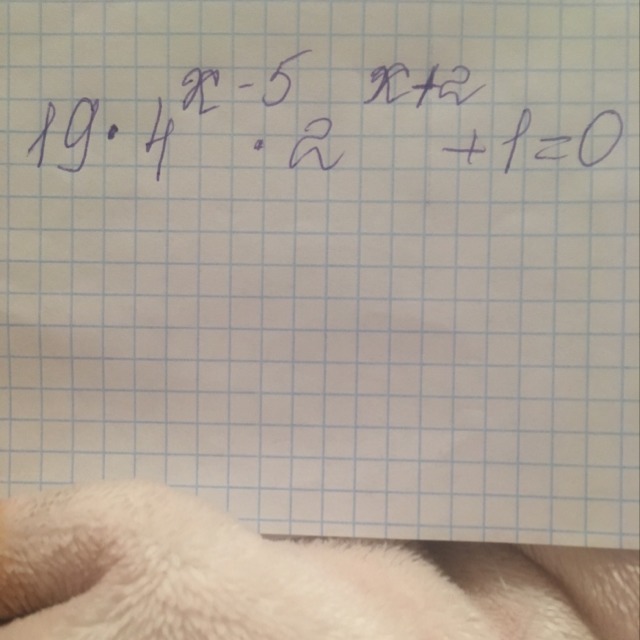 19 · 4^{x-5} · 2^{x+2} + 1 = 0